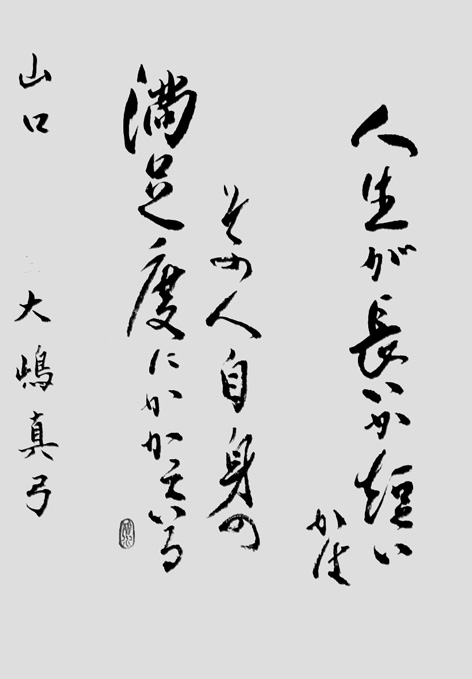 人生が長いか短い
かは
その人自身の
満足度にかかっている
山口 大嶋真弓